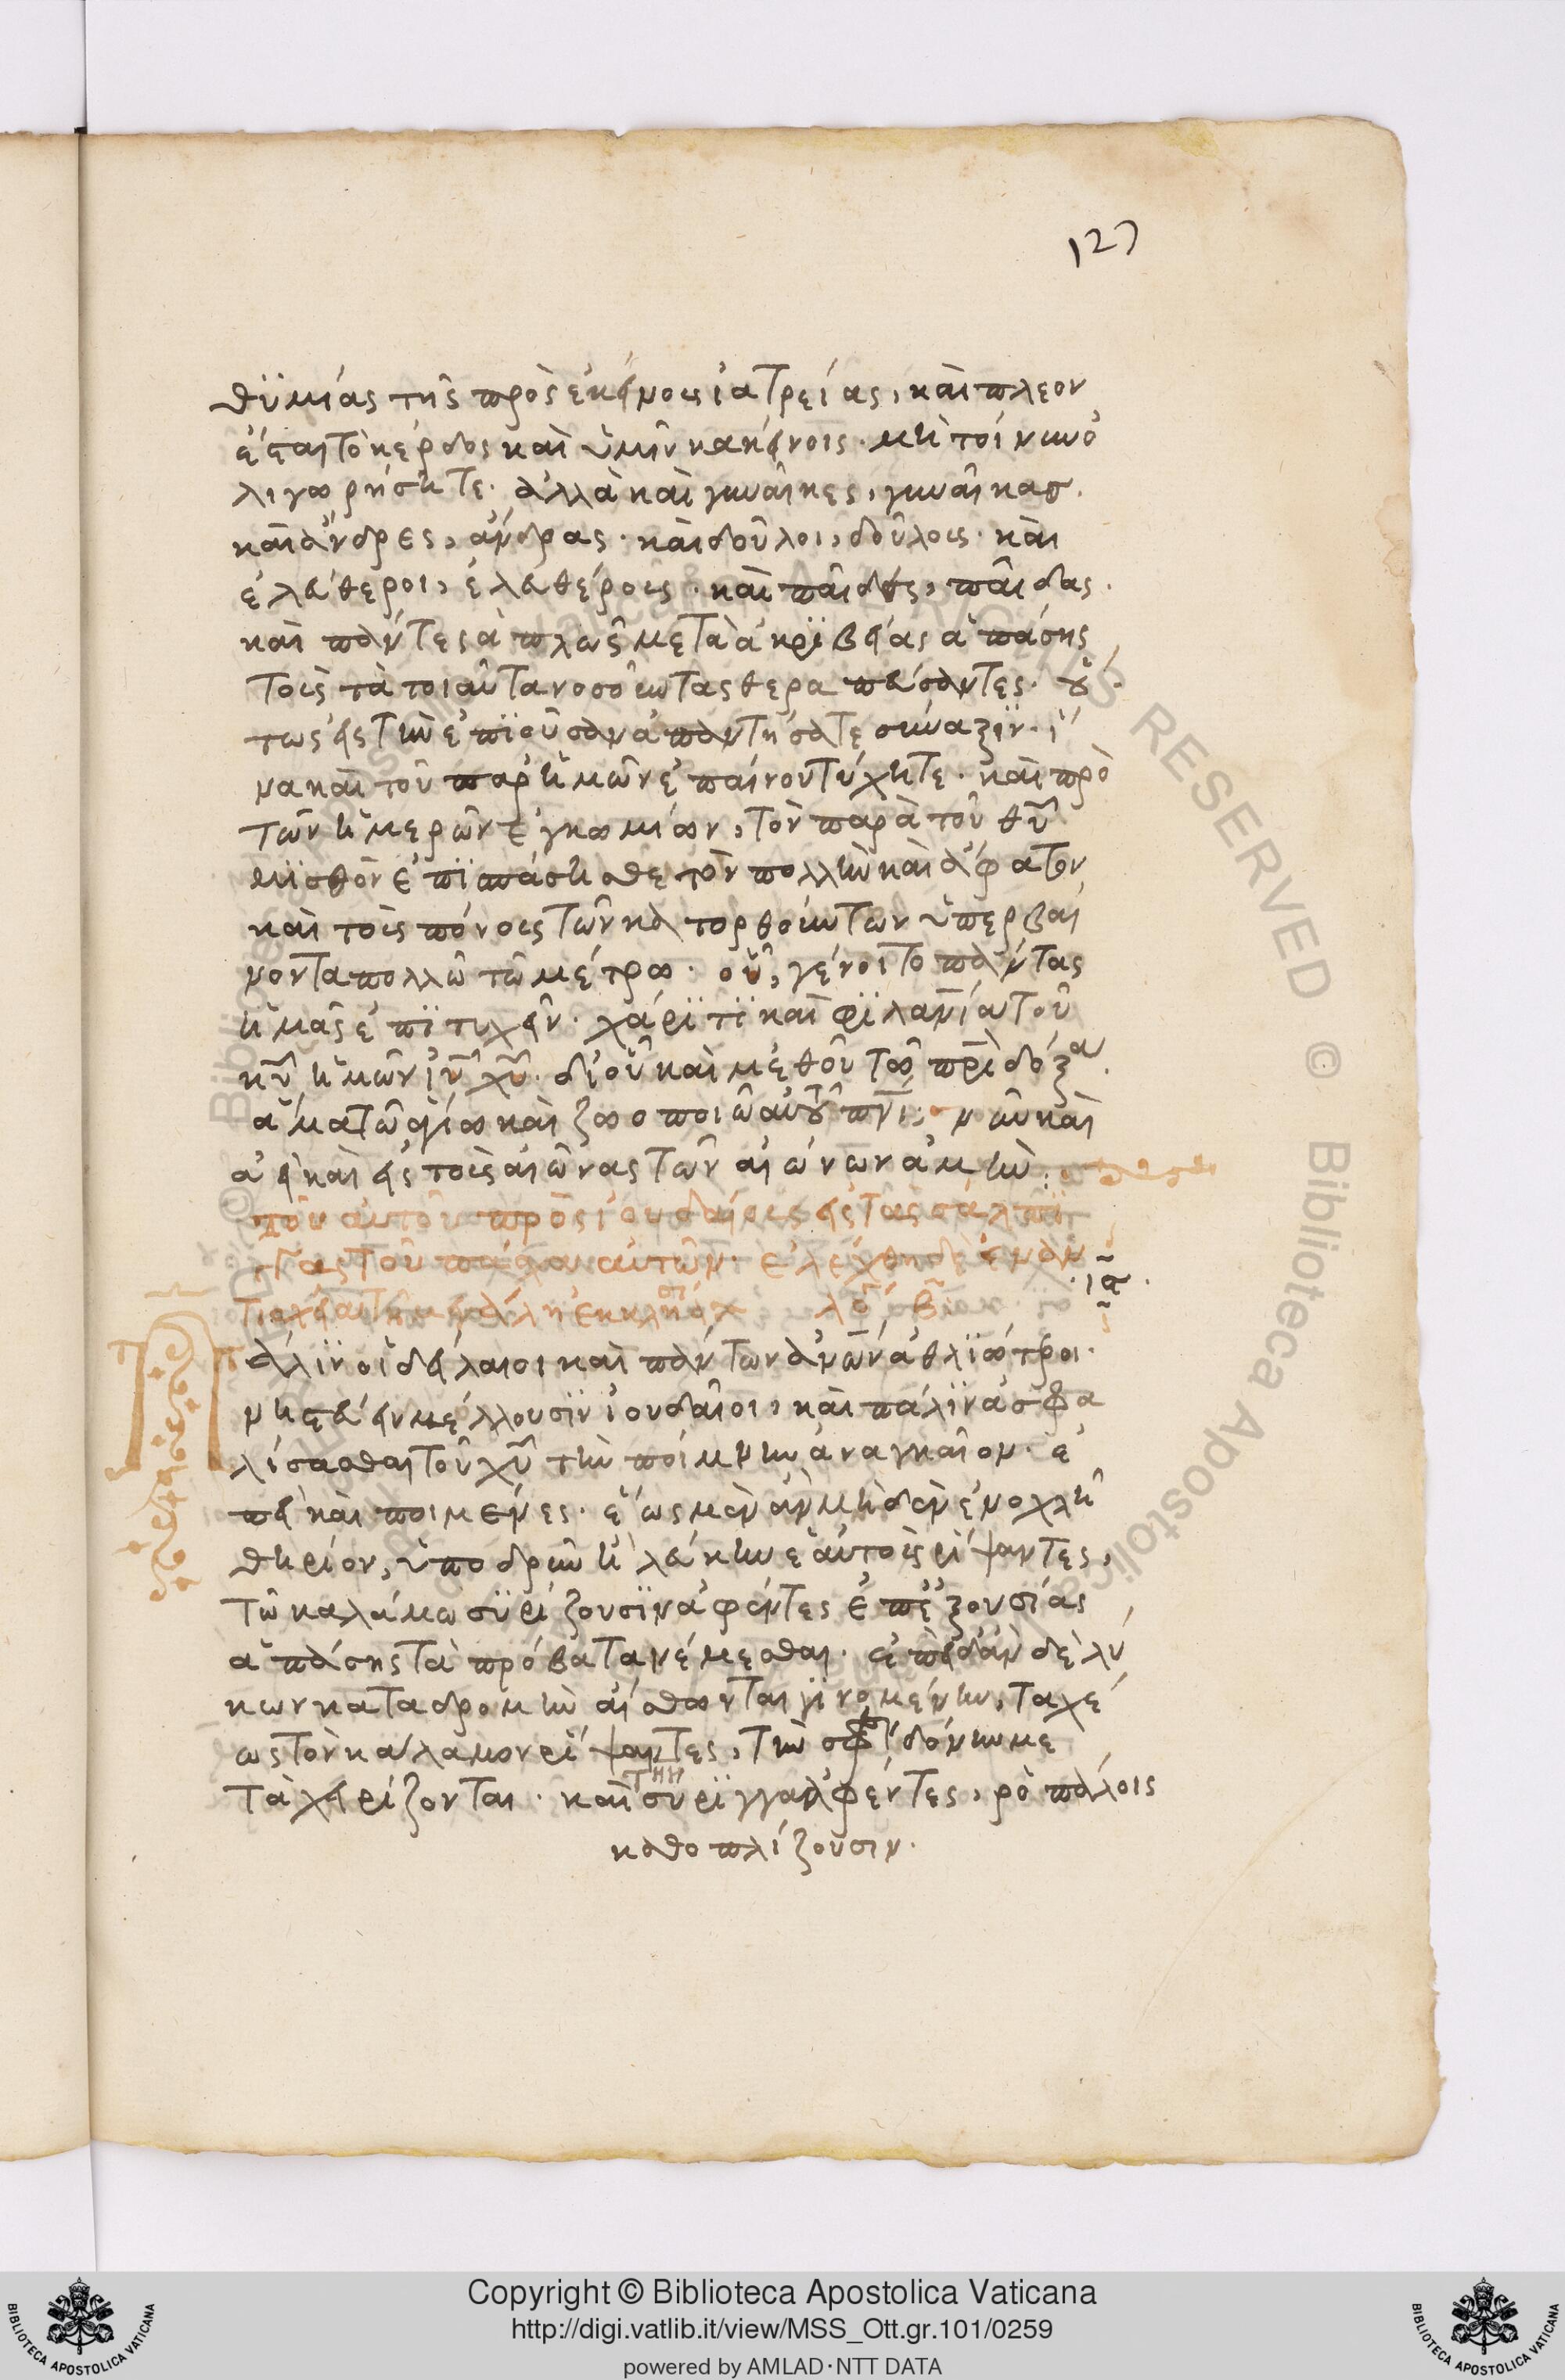 127
θϋμίας τῆς πρὸς ἐκείνους ἰατρείας, καὶ πλεον
ἔσται τὸ κέρδος καὶ ὑμῖν κακείνοις. μὴ τοίνυν ὀ
λιγωρήσητε. ἀλλὰ καὶ γυναῖκες, γυναῖκασ.
καὶ ἄνδρες, ἄνδρας. καὶ δοῦλοι, δούλους. καὶ
ἐλεύθεροι, ἐλευθέρους. καὶ παῖδες, παῖδας.
καὶ πάντες ἁπλῶς μετὰ ἀκρϊβείας ἁπάσης
τοὺς τὰ τοιαῦτα νοσοῦντας θεραπεύσαντες. οὕ
τως εἰς τὴν ἐπϊοῦσαν ἀπαντήσατε σύναξϊν. ἵ
να καὶ τοῦ παρ' ἡμῶν ἐπαίνου τύχητε. καὶ πρὸ
τῶν ἡμερῶν ἐγκωμίων, τὸν παρὰ τοῦ θῦ
μϊσθὸν ἐπϊσπάσησθε τὸν πολλὴν καὶ ἄφατον
καὶ τοὺς πόνους τῶν κατορθούντων ὑπερβαί
νοντα πολλῶ τῶ μέτρω. οὗ, γένοιτο πάντας
ἡμᾶς ἐπϊτυχεῖν. χάρϊτϊ καὶ φϊλανία τοῦ
κῦ ἡμῶν ἰῦ χῦ. δι' οὗ καὶ μεθ' οὗ τῶ πρὶ δόξα
ἅμα τῶ ἁγίω καὶ ζωοποιῶ αὐτοῦ πνι: νῦν καὶ
ἀεὶ καὶ εἰς τοὺς αἰῶνας τῶν αἰώνων ἀμήν:
τοῦ αὐτοῦ πρὸς ἰουδαίους εἰς τὰς σάλπϊ
γγας τοῦ πάσχα αὐτῶν. ἐλέχθη δὲ ἐν ἀν
τιοχεία τῆ μεγάλη ἐκκλησία λό β
ια
Πάλϊν οἱ δείλαιοι καὶ πάντων ἀνων ἀθλϊώτεροι.
νηστεύειν μέλλουσϊν ἰουδαῖοι, καὶ πάλϊν ἀσφα
λίσασθαι τοῦ χῦ τὴν ποίμνην ἀναγκαῖον. ἐ
πεὶ καὶ ποιμένες. ἕως μὲν ἂν μηδὲν ἐνοχλῆ
θηρίον, ὑπο δρῦν ἢ λεύκην ἑαυτοὺς ρίψαντες,
τῶ καλάμω σϋρίζουσϊν ἀφέντες ἐπ' ἐξουσίας
ἁπάσης τὰ πρόβατα νέμεσθαι. ἐπειδὰν δὲ λύ
κων καταδρομὴν αἴσθωνται γϊνομένην, ταχέ
ως τὸν κάλαμον ρίψαντες, τὴν σφενδόνην με
ταχειρίζονται. καὶ τὴν σύρϊγγα ἀφέντες, ροπάλοις
καθοπλίζουσιν.
Copyright © Biblioteca Apostolica Vaticana
http://digi.vatlib.it/view/MSS_Ott.gr.101/0259
powered by AMLAD·NTT DATA